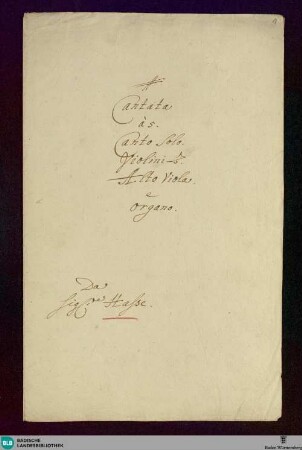 Cantata
à 5.
Canto Solo.
Violini
Alto Viola.
e
Organo.
Da
Sig:re Hasse.
BLB BADISCHE
LANDESBIBLIOTHEK
Baden-Württemberg